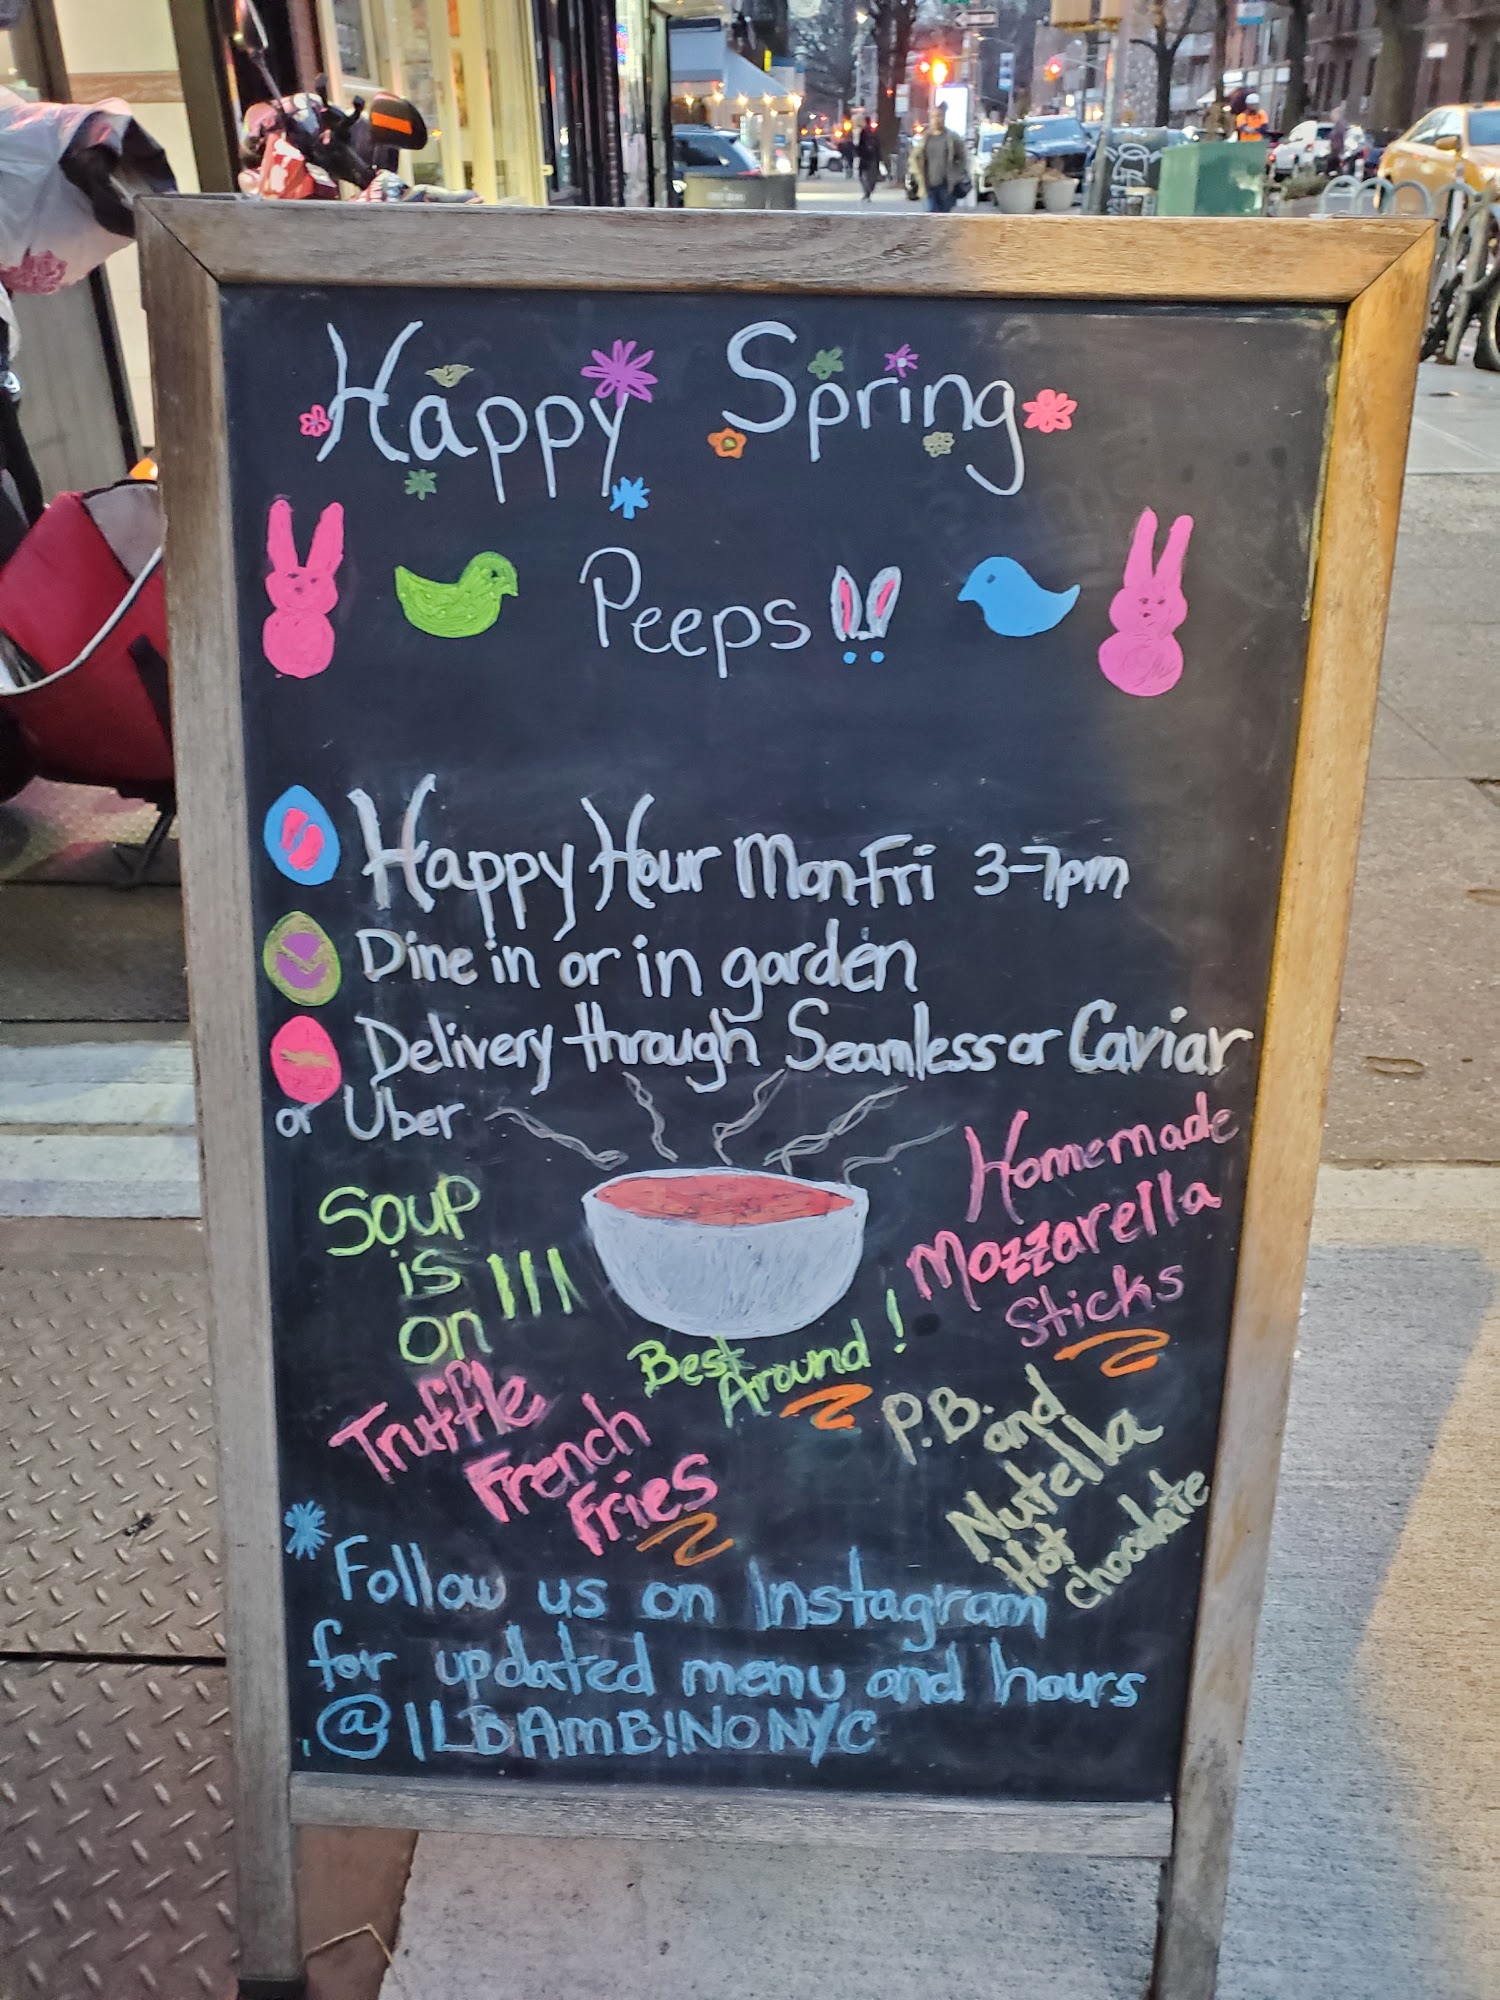 Happy Spring
Peeps!!
Happy Hour Mon-Fri 3-7pm
Dine in or in garden
Delivery through Seamless or Caviar
or Uber
Soup
is
on !!!
Best
Around!
Homemade
Mozzarella
Sticks
Truffle
French
Fries
P.B. and
Nutella
Hot
chocolate
Follow us on Instagram
for updated menu and hours
@ILBAMBINONYC